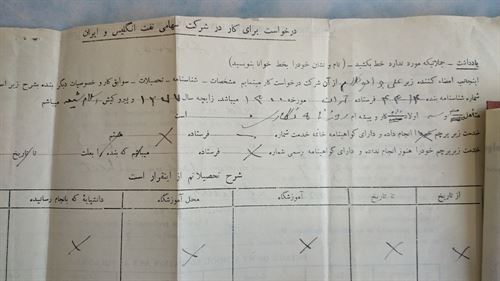 درخواست برای کار در شرکت سهامی نفت انگلیس و ایران
یادداشت - جملاتیکه مورد ندارد خط بکشید - ( نام و نشان خودرا بخط خوانا بنویسید )
اینجانب امضاء کننده زیر علی از آن شرکت درخواست کار مینمایم مشخصات - شناسنامه - تحصیلات - سوابق کار و خصوصیات دیگر بنده بشرح زیر است
شماره شناسنامه بنده فرستاده مورخه میباشد زایچه سال ۱۲۷۷ و پیرو کیش میباشم
متاهل اولاد و پیشه ام است
خدمت زیر پرچم خودرا انجام داده و دارای گواهینامه خاتمه خدمت شماره × فرستاده × هستم
خدمت زیر پرچم خودرا هنوز انجام نداده و دارای گواهینامه رسمی شماره × فرستاده میباشم که بنده را بعلت × تا تاریخ
شرح تحصیلاتم از اینقرار است
از تاریخ تا تاریخ آموزشگاه محل آموزشگاه دانشهایه که بانجام رسانیده
× × × × ×